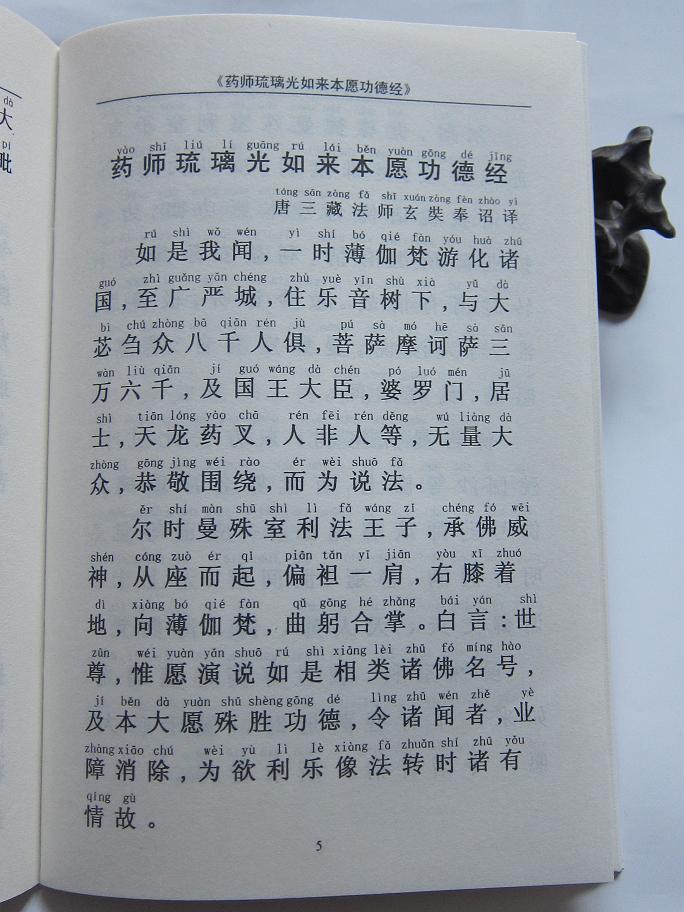 dà
大
pí
毗
《药师琉璃光如来本愿功德经》
yào shī liú lí guāng rú lái běn yuàn gōng dé jīng
药师琉璃光如来本愿功德经
táng sān zàng fǎ shī xuán zàng fèn zhào yì
唐三藏法师玄奘奉诏译
rú shì wǒ wén yì shí bó qié fàn yóu huà zhū
如是我闻,一时薄伽梵游化诸
guó zhì guǎng yán chéng zhù yuè yīn shù xià yǔ dà
国,至广严城,住乐音树下,与大
bì chú zhòng bā qiān rén jù pú sà mó hē sà sān
苾刍众八千人俱,菩萨摩诃萨三
wàn liù qiān jí guó wáng dà chén pó luó mén jū
万六千,及国王大臣,婆罗门,居
shì tiān lóng yào chā rén fēi rén děng wú liàng dà
士,天龙药叉,人非人等,无量大
zhòng gōng jìng wéi rào ér wèi shuō fǎ
众,恭敬围绕,而为说法。
ěr shí màn shū shì lì fǎ wáng zǐ chéng fó wēi
尔时曼殊室利法王子,承佛威
shén cóng zuò ér qǐ piān tǎn yī jiān yòu xī zhuó
神,从座而起,偏袒一肩,右膝着
dì xiàng bó qié fàn qǔ gōng hé zhǎng bái yán shì
地,向薄伽梵,曲躬合掌。白言:世
zūn wéi yuàn yǎn shuō rú shì xiāng lèi zhū fó míng hào
尊,惟愿演说如是相类诸佛名号,
jí běn dà yuàn shū shèng gōng dé lìng zhū wén zhě yè
及本大愿殊胜功德,令诸闻者,业
zhàng xiāo chú wèi yù lì lè xiàng fǎ zhuǎn shí zhū yǒu
障消除,为欲利乐像法转时诸有
qíng gù
情故。
5